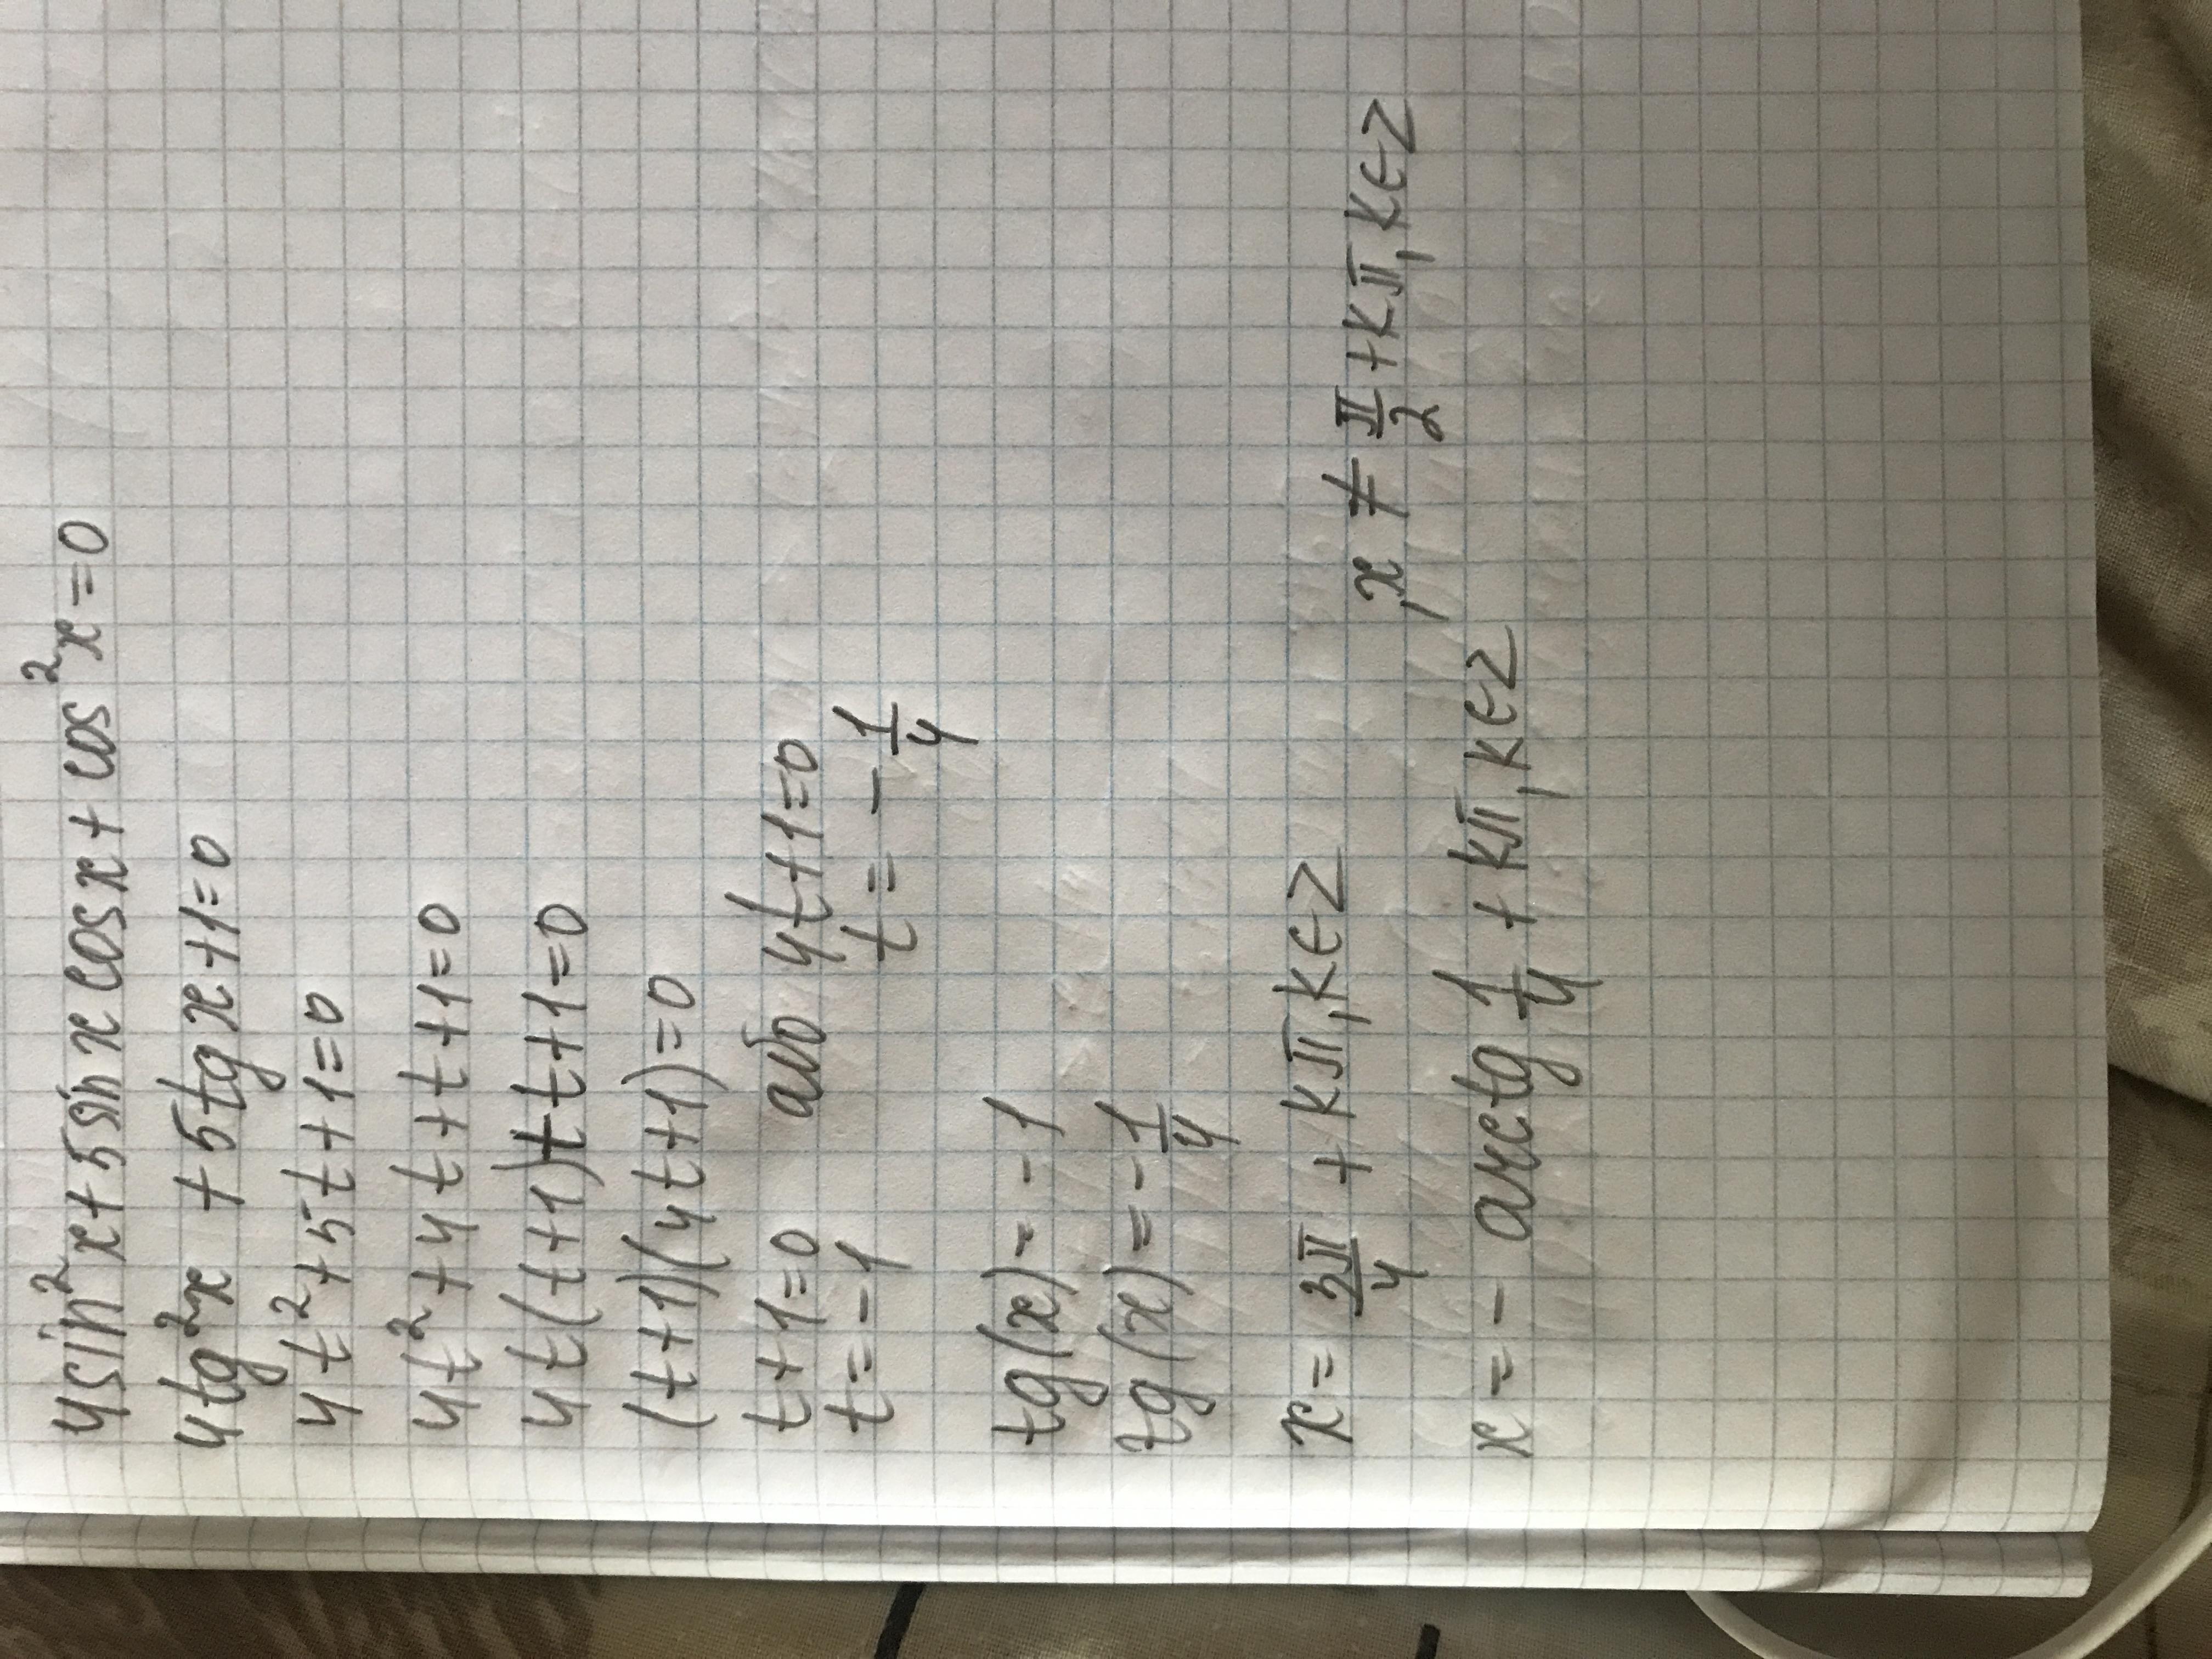 4sin²x+5sin x cos x + cos²x=0
4tg²x + 5tg x+1=0
4t²+5t+1=0
4t²+4t+t+1=0
4t(t+1)+t+1=0
(t+1)(4t+1)=0
t+1=0 або 4t+1=0
t=-1 t=-1/4
tg(x)=-1
tg(x)=-1/4
x=3π/4 + kπ, k∈Z
, x ≠ π/2 + kπ, k∈Z
x=- arctg 1/4 + kπ, k∈Z